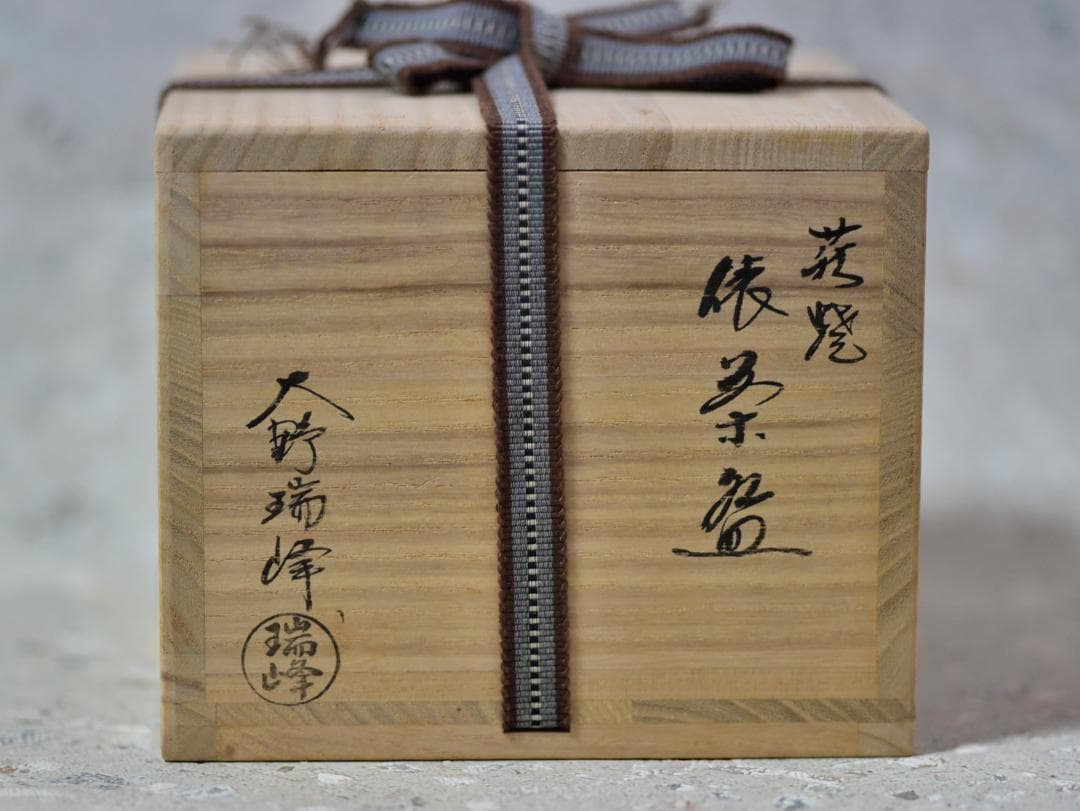 萩焼
俵茶盌
大野瑞峰
瑞峰